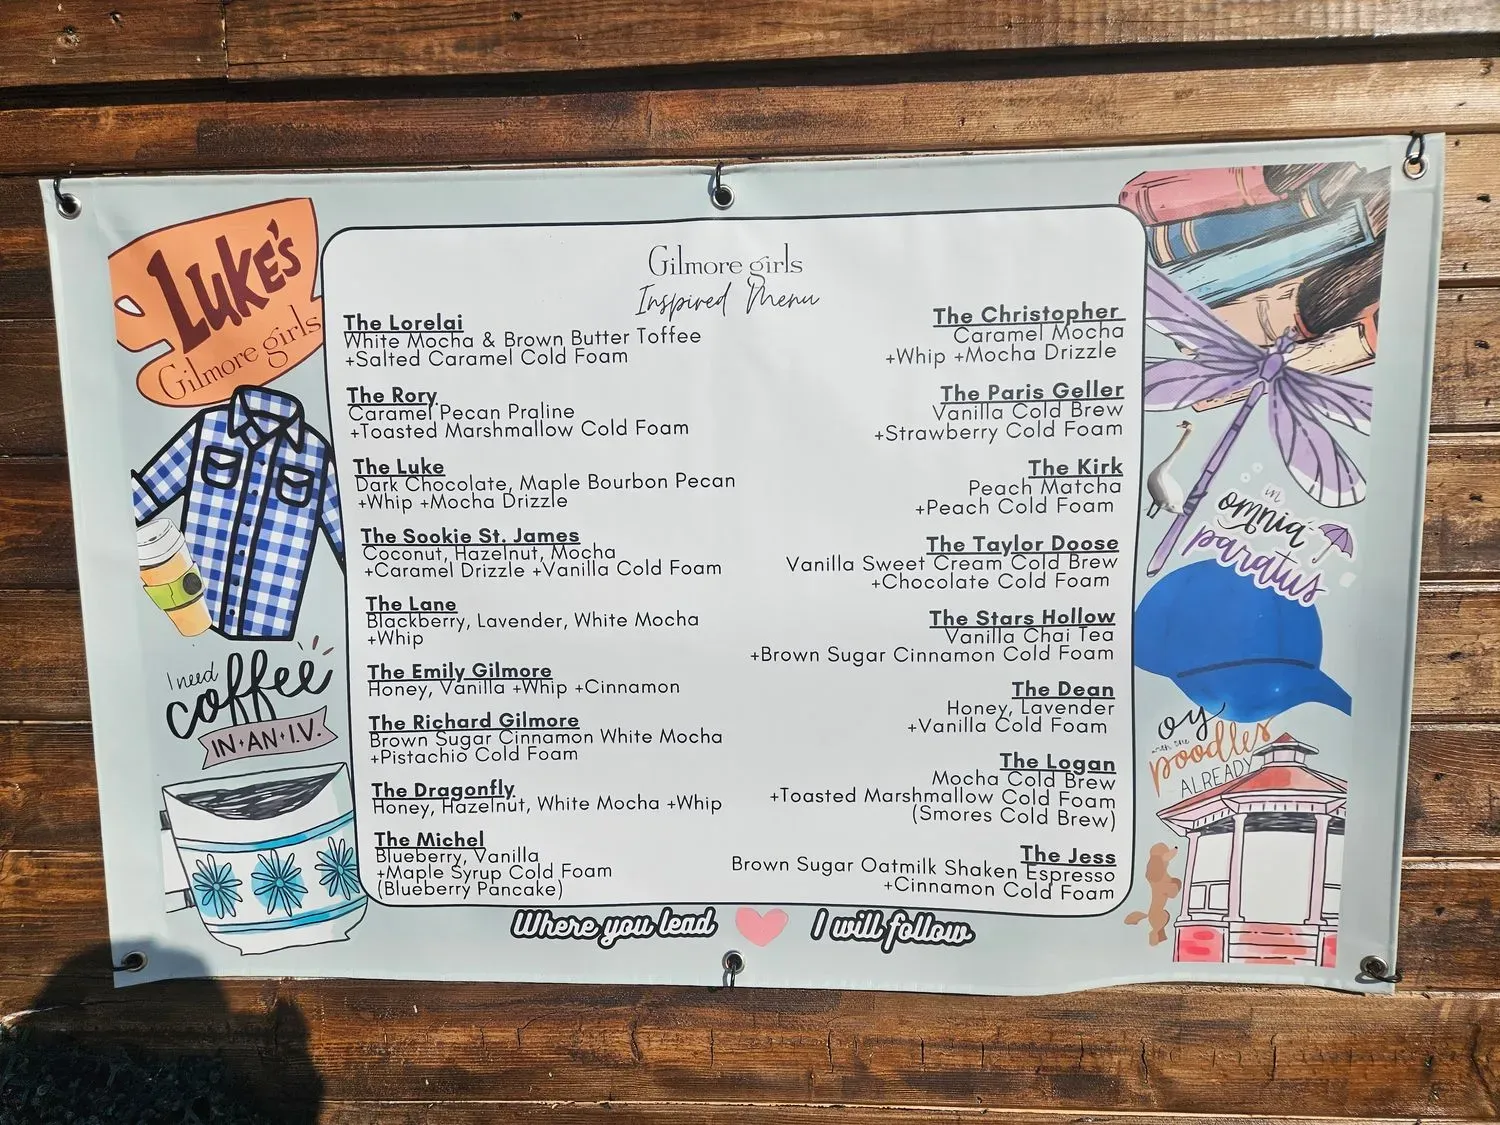 LUKE'S
Gilmore girls
I need
coffee
IN•AN•I.V.
Gilmore girls
Inspired Menu
The Lorelai
White Mocha & Brown Butter Toffee
+Salted Caramel Cold Foam
The Rory
Caramel Pecan Praline
+Toasted Marshmallow Cold Foam
The Luke
Dark Chocolate, Maple Bourbon Pecan
+Whip +Mocha Drizzle
The Sookie St. James
Coconut, Hazelnut, Mocha
+Caramel Drizzle +Vanilla Cold Foam
The Lane
Blackberry, Lavender, White Mocha
+Whip
The Emily Gilmore
Honey, Vanilla +Whip +Cinnamon
The Richard Gilmore
Brown Sugar Cinnamon White Mocha
+Pistachio Cold Foam
The Dragonfly
Honey, Hazelnut, White Mocha +Whip
The Michel
Blueberry, Vanilla
+Maple Syrup Cold Foam
(Blueberry Pancake)
The Christopher
Caramel Mocha
+Whip +Mocha Drizzle
The Paris Geller
Vanilla Cold Brew
+Strawberry Cold Foam
The Kirk
Peach Matcha
+Peach Cold Foam
The Taylor Doose
Vanilla Sweet Cream Cold Brew
+Chocolate Cold Foam
The Stars Hollow
Vanilla Chai Tea
+Brown Sugar Cinnamon Cold Foam
The Dean
Honey, Lavender
+Vanilla Cold Foam
The Logan
Mocha Cold Brew
+Toasted Marshmallow Cold Foam
(Smores Cold Brew)
The Jess
Brown Sugar Oatmilk Shaken Espresso
+Cinnamon Cold Foam
Where you lead I will follow
in
omnia
paratus
oy
with the
poodles
ALREADY